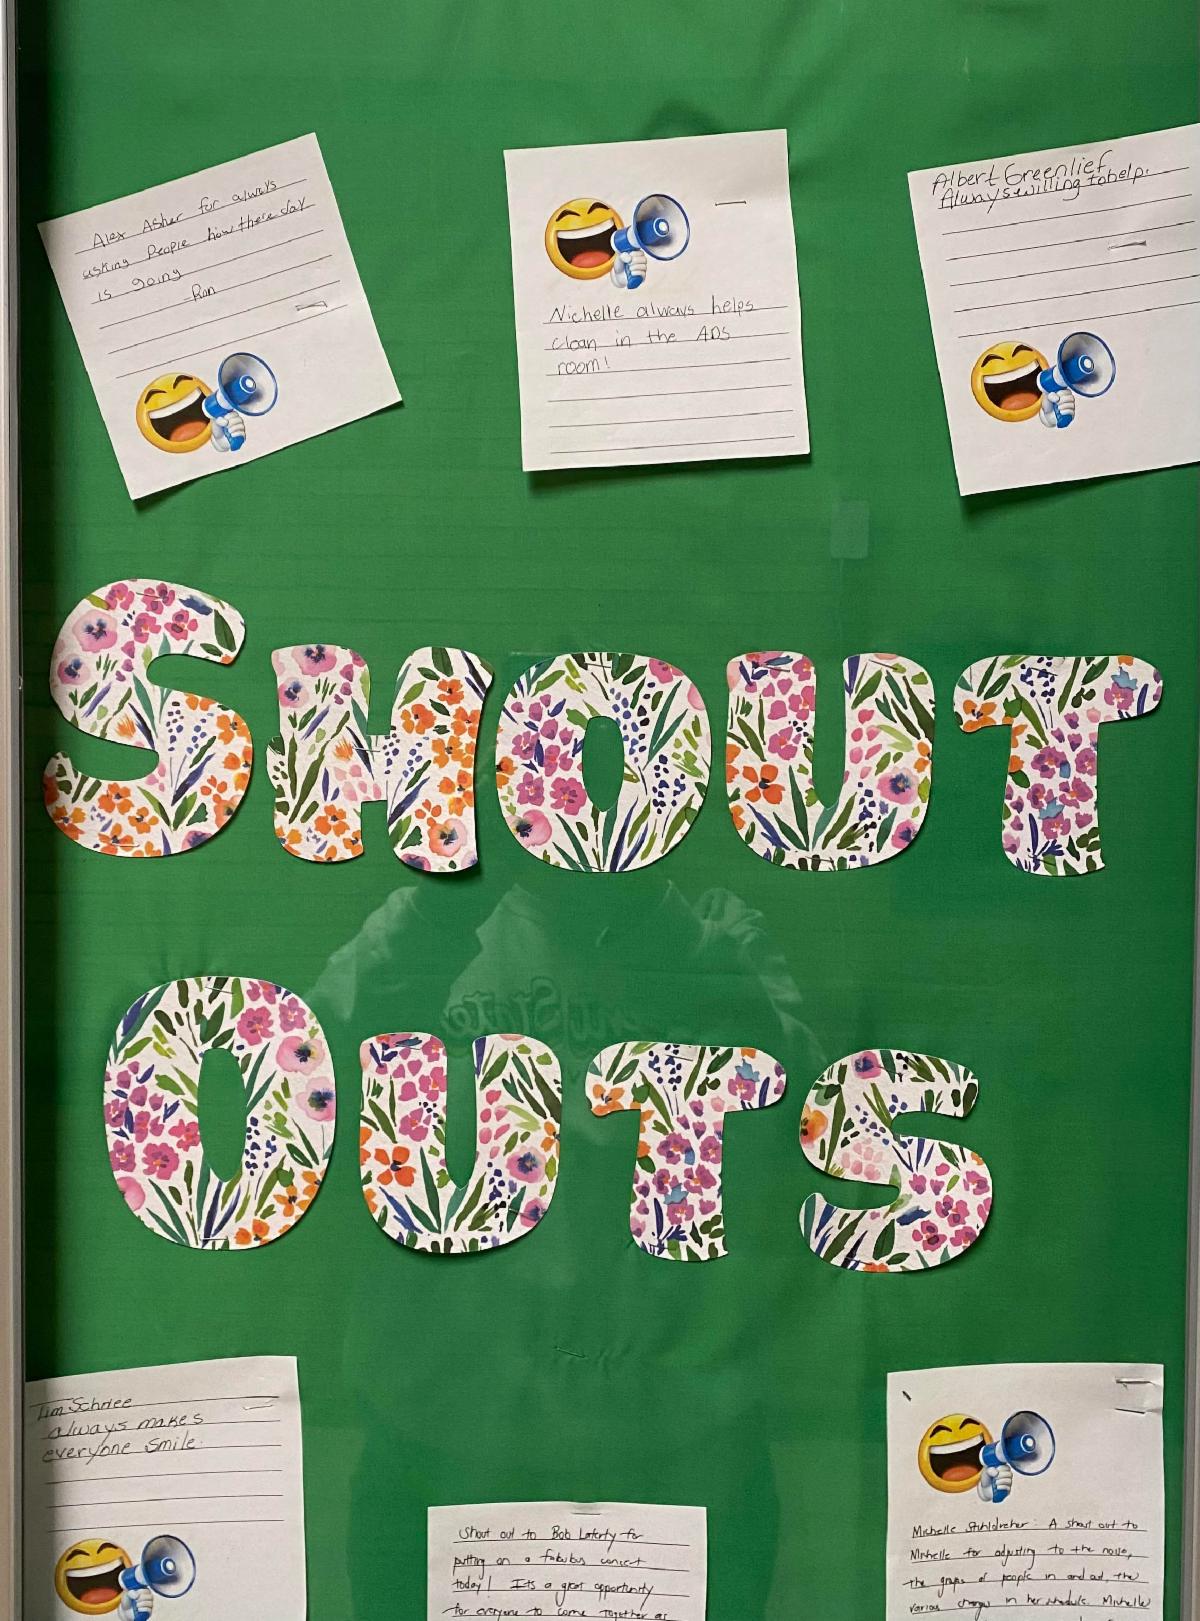 Alex Asher for always
asking People how there day
is going
-Ron
Nichelle always helps
clean in the ADS
room!
Albert Greenlief
Always willing to help.
SHOUT
OUTS
Tim Schriee
always makes
everyone smile.
Shout out to Bob Laferty for
putting on a fabulous concert
today! Its a great opportunity
for everyone to come together as
Michelle Stuhldreher: A shout out to
Michelle for adjusting to the noise,
the groups of people in and out, the
various changes in her schedule. Michelle